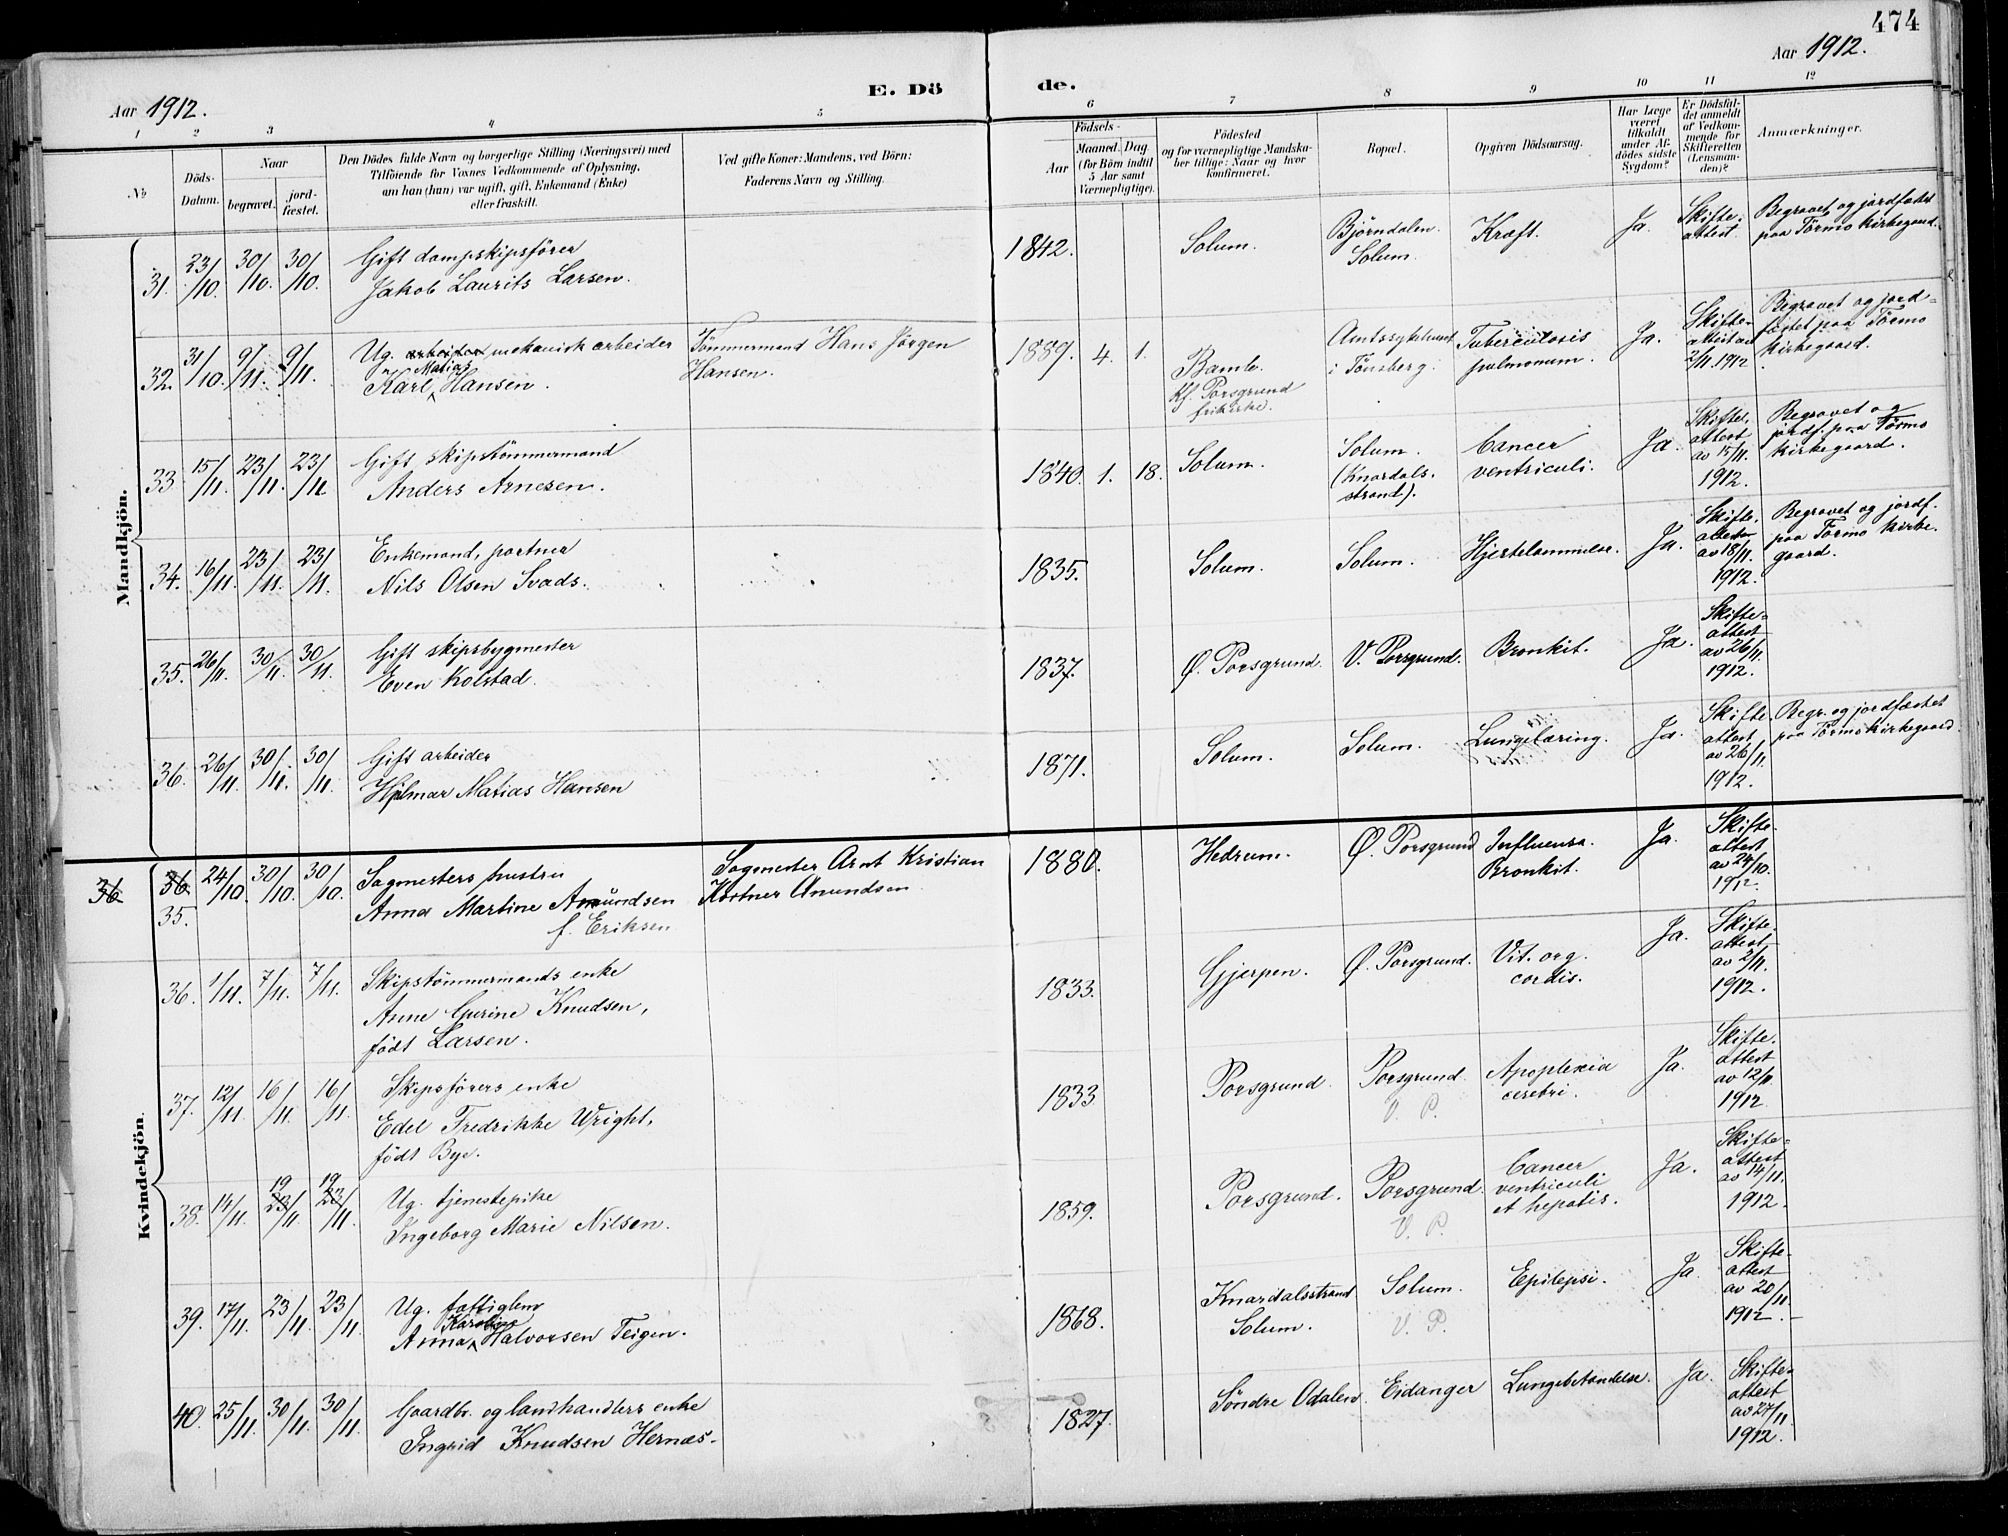 474
Aar 1912.
E. Döde.
Aar 1912.
1 2 3 4 5 6 7 8 9 10 11 12
№
Döds-Datum.
Naar
begravet.
jord-fæstet.
Den Dödes fulde Navn og borgerlige Stilling (Næringsvei) med
Tilföiende for Voxnes Vedkommende af Oplysning,
om han (hun) var ugift, gift, Enkemand (Enke)
eller fraskilt.
Ved gifte Koner: Mandens, ved Börn:
Faderens Navn og Stilling.
Födsels-
Aar
Maaned. Dag.
(for Börn indtil
5 Aar samt
Værnepligtige).
Födested
og for værnepligtige Mandska-
ber tillige: Naar og hvor
konfirmeret.
Bopæl.
Opgiven Dödsaarsag.
Har Læge
været
tilkaldt
under Af-
dödes sidste
Sygdom?
Er Dödsfal-
det anmeldt
af Vedkom-
mende for
Skifteretten
(Lensman-
den)?
Anmærkninger.
Mandkjön.
31. 23/10. 30/10. 30/10. Gift dampskipsfører
Jakob Laurits Larsen.
1842. Solum. Bjørndalen. Solum. Kræft. Ja. Skifte-attest. Begravet og jordfæstet
paa Törmo kirkegaard.
32. 31/10. 9/11. 9/11. Ug. arbeider mekanisk arbeider
Karl Matias Hansen.
Tømmermand Hans Jørgen
Hansen.
1889. 4. 1. Bamle.
Kf. Porsgrund
frikirke.
Amtssykehuset
i Tönsberg.
Tuberculosis
pulmonum.
Ja. Skifte-
attest av
2/11. 1912
Begravet og jord-
fæstet paa Törmo
kirkegaard.
33. 15/11. 23/11. 23/11. Gift skipstømmermand
Anders Arnesen.
1840. 1. 18. Solum. Solum.
(Knardals-
strand).
Cancer
ventriculi.
Ja. Skifte-
attest
av 15/11.
1912.
Begravet og
jordf. paa Törmo
kirkegaard.
34. 16/11. 23/11. 23/11. Enkemand, partner
Nils Olsen Svads.
1835. Solum. Solum. Hjertelammelse. Ja. Skifte-
attest
av 18/11.
1912.
Begravet og jordf.
paa Törmo kirke-
gaard.
35. 26/11. 30/11. 30/11. Gift skipsbygmester
Even Kolstad.
1837. Ø. Porsgrund. V. Porsgrund. Bronkit. Ja. Skifte-
attest
av 26/11.
1912.
36. 26/11. 30/11. 30/11. Gift arbeider
Hjelmar Matias Hansen
1871. Solum. Solum. Lungetæring. Ja. Skifte-
attest
av 26/11.
1912.
Begr. og jordfæstet
paa Törmo kirkegaard.
Kvindekjön.
36 36. 35. 24/10. 30/10. 30/10. Sagmesters hustru
Anna Martine Amundsen
f. Eriksen
Sagmester Arnt Kristian
Kortner Amundsen.
1880. Hedrum. Ø. Porsgrund Influensa.
Bronkit.
Ja. Skifte-
attest
av 24/10.
1912.
36. 1/11. 7/11. 7/11. Skipstømmermands enke
Anne Gurine Knudsen,
født Larsen.
1833. Gjerpen. Ø. Porsgrund. Vit. org.
cordis.
Ja. Skifte-
attest
av 2/11.
1912.
37. 12/11. 16/11. 16/11. Skipsførers enke
Edel Fredrikke Wright,
født Bye.
1833 Porsgrund. Porsgrund.
V. P.
Apoplexia
cerebri.
Ja. Skifte-
attest
av 12/11
1912
38. 14/11. 19 23/11. 19 23/11. Ug. tjenestepike
Ingeborg Marie Nilsen.
1859. Porsgrund. Porsgrund.
V. P.
Cancer
ventriculi
et hepatis.
Ja. Skifte-
attest
av 14/11.
1912.
39. 17/11. 23/11. 23/11. Ug. fattiglem
Anna Karoline Halvorsen Teigen.
1868. Knardalsstrand
Solum.
Solum.
V. P.
Epilepsi. Ja. Skifte-
attest
av 20/11.
1912.
40. 25/11. 30/11. 30/11. Gaardbr. og landhandlers enke
Ingrid Knudsen Hernæs.
1827. Søndre Odalen. Eidanger Lungebetændelse. Ja. Skifte-
attest
av 27/11.
1912.